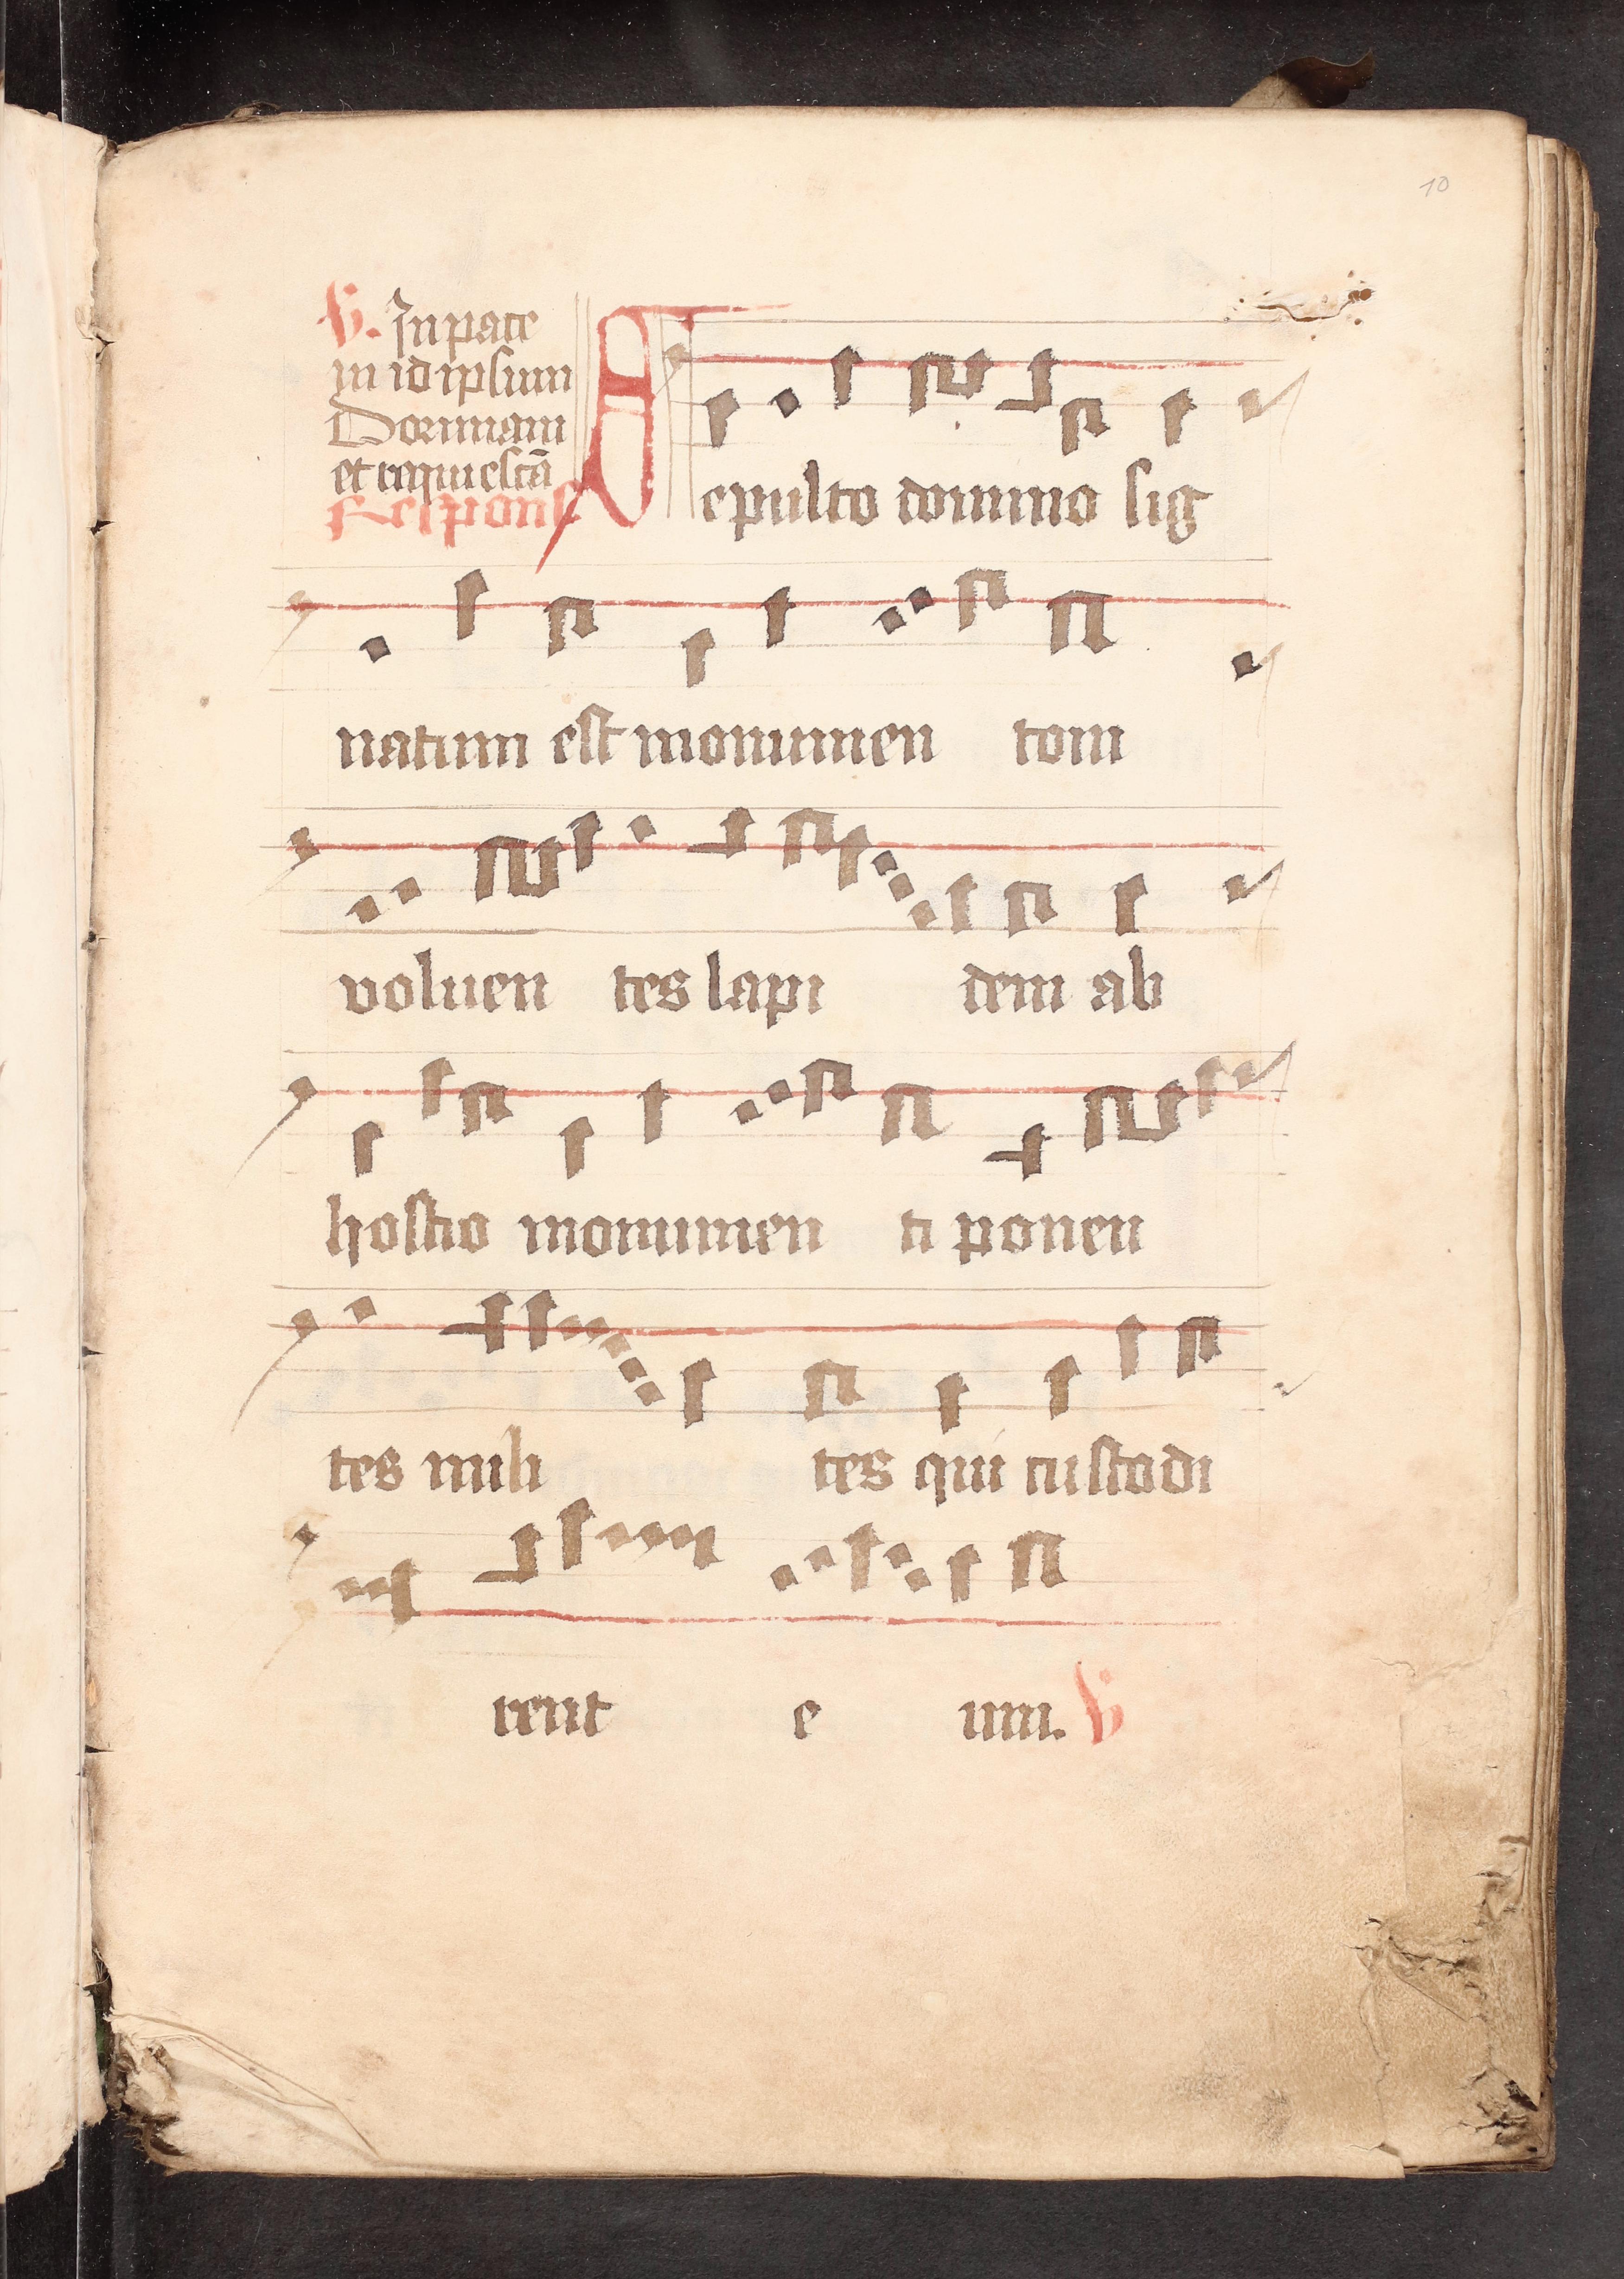 10
V. In pace
in id ipsum
Dormiam
et requiescā
Respons
Sepulto domino sig
natum est monumen tom
voluen tes lapi dem ab
hostio monumen ti ponen
tes mili tes qui custodi
rent e um. V